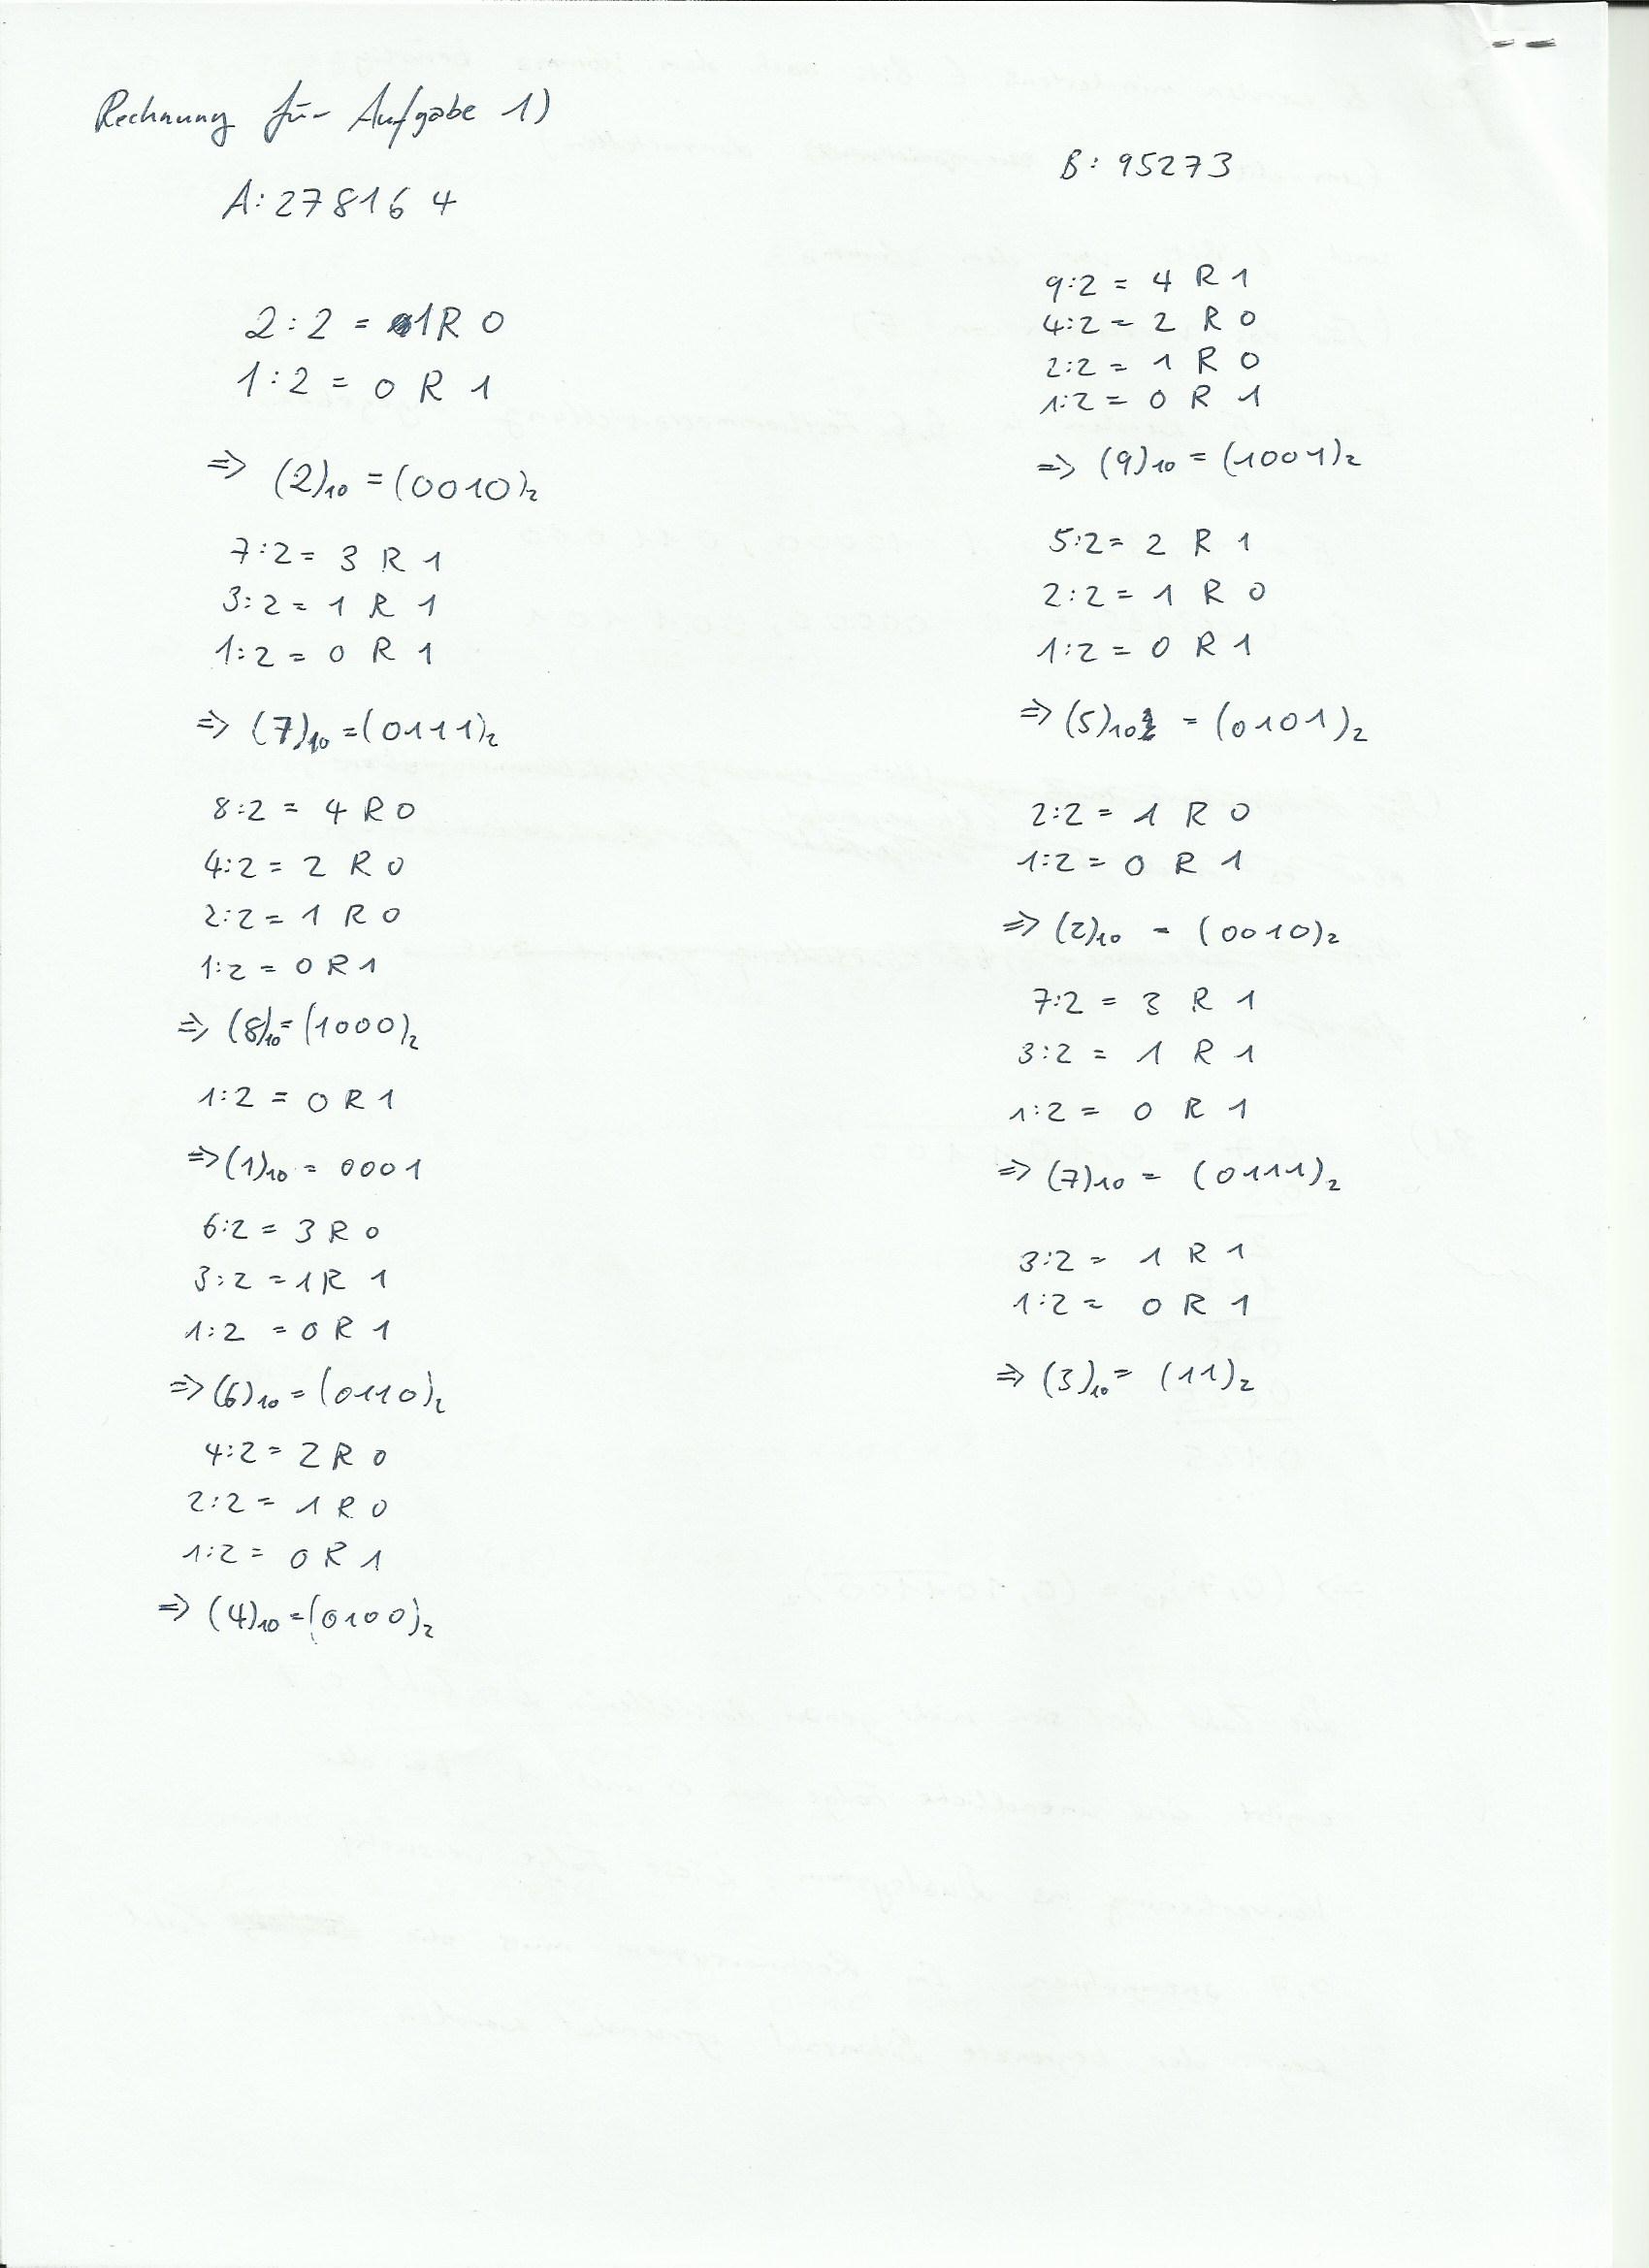 Rechnung für Aufgabe 1)
A: 278164
2:2 = 1 R 0
1:2 = 0 R 1
=> (2)10 = (0010)2
7:2 = 3 R 1
3:2 = 1 R 1
1:2 = 0 R 1
=> (7)10 = (0111)2
8:2 = 4 R 0
4:2 = 2 R 0
2:2 = 1 R 0
1:2 = 0 R 1
=> (8)10 = (1000)2
1:2 = 0 R 1
=> (1)10 = 0001
6:2 = 3 R 0
3:2 = 1 R 1
1:2 = 0 R 1
=> (6)10 = (0110)2
4:2 = 2 R 0
2:2 = 1 R 0
1:2 = 0 R 1
=> (4)10 = (0100)2
B: 95273
9:2 = 4 R 1
4:2 = 2 R 0
2:2 = 1 R 0
1:2 = 0 R 1
=> (9)10 = (1001)2
5:2 = 2 R 1
2:2 = 1 R 0
1:2 = 0 R 1
=> (5)10 = (0101)2
2:2 = 1 R 0
1:2 = 0 R 1
=> (2)10 = (0010)2
7:2 = 3 R 1
3:2 = 1 R 1
1:2 = 0 R 1
=> (7)10 = (0111)2
3:2 = 1 R 1
1:2 = 0 R 1
=> (3)10 = (11)2